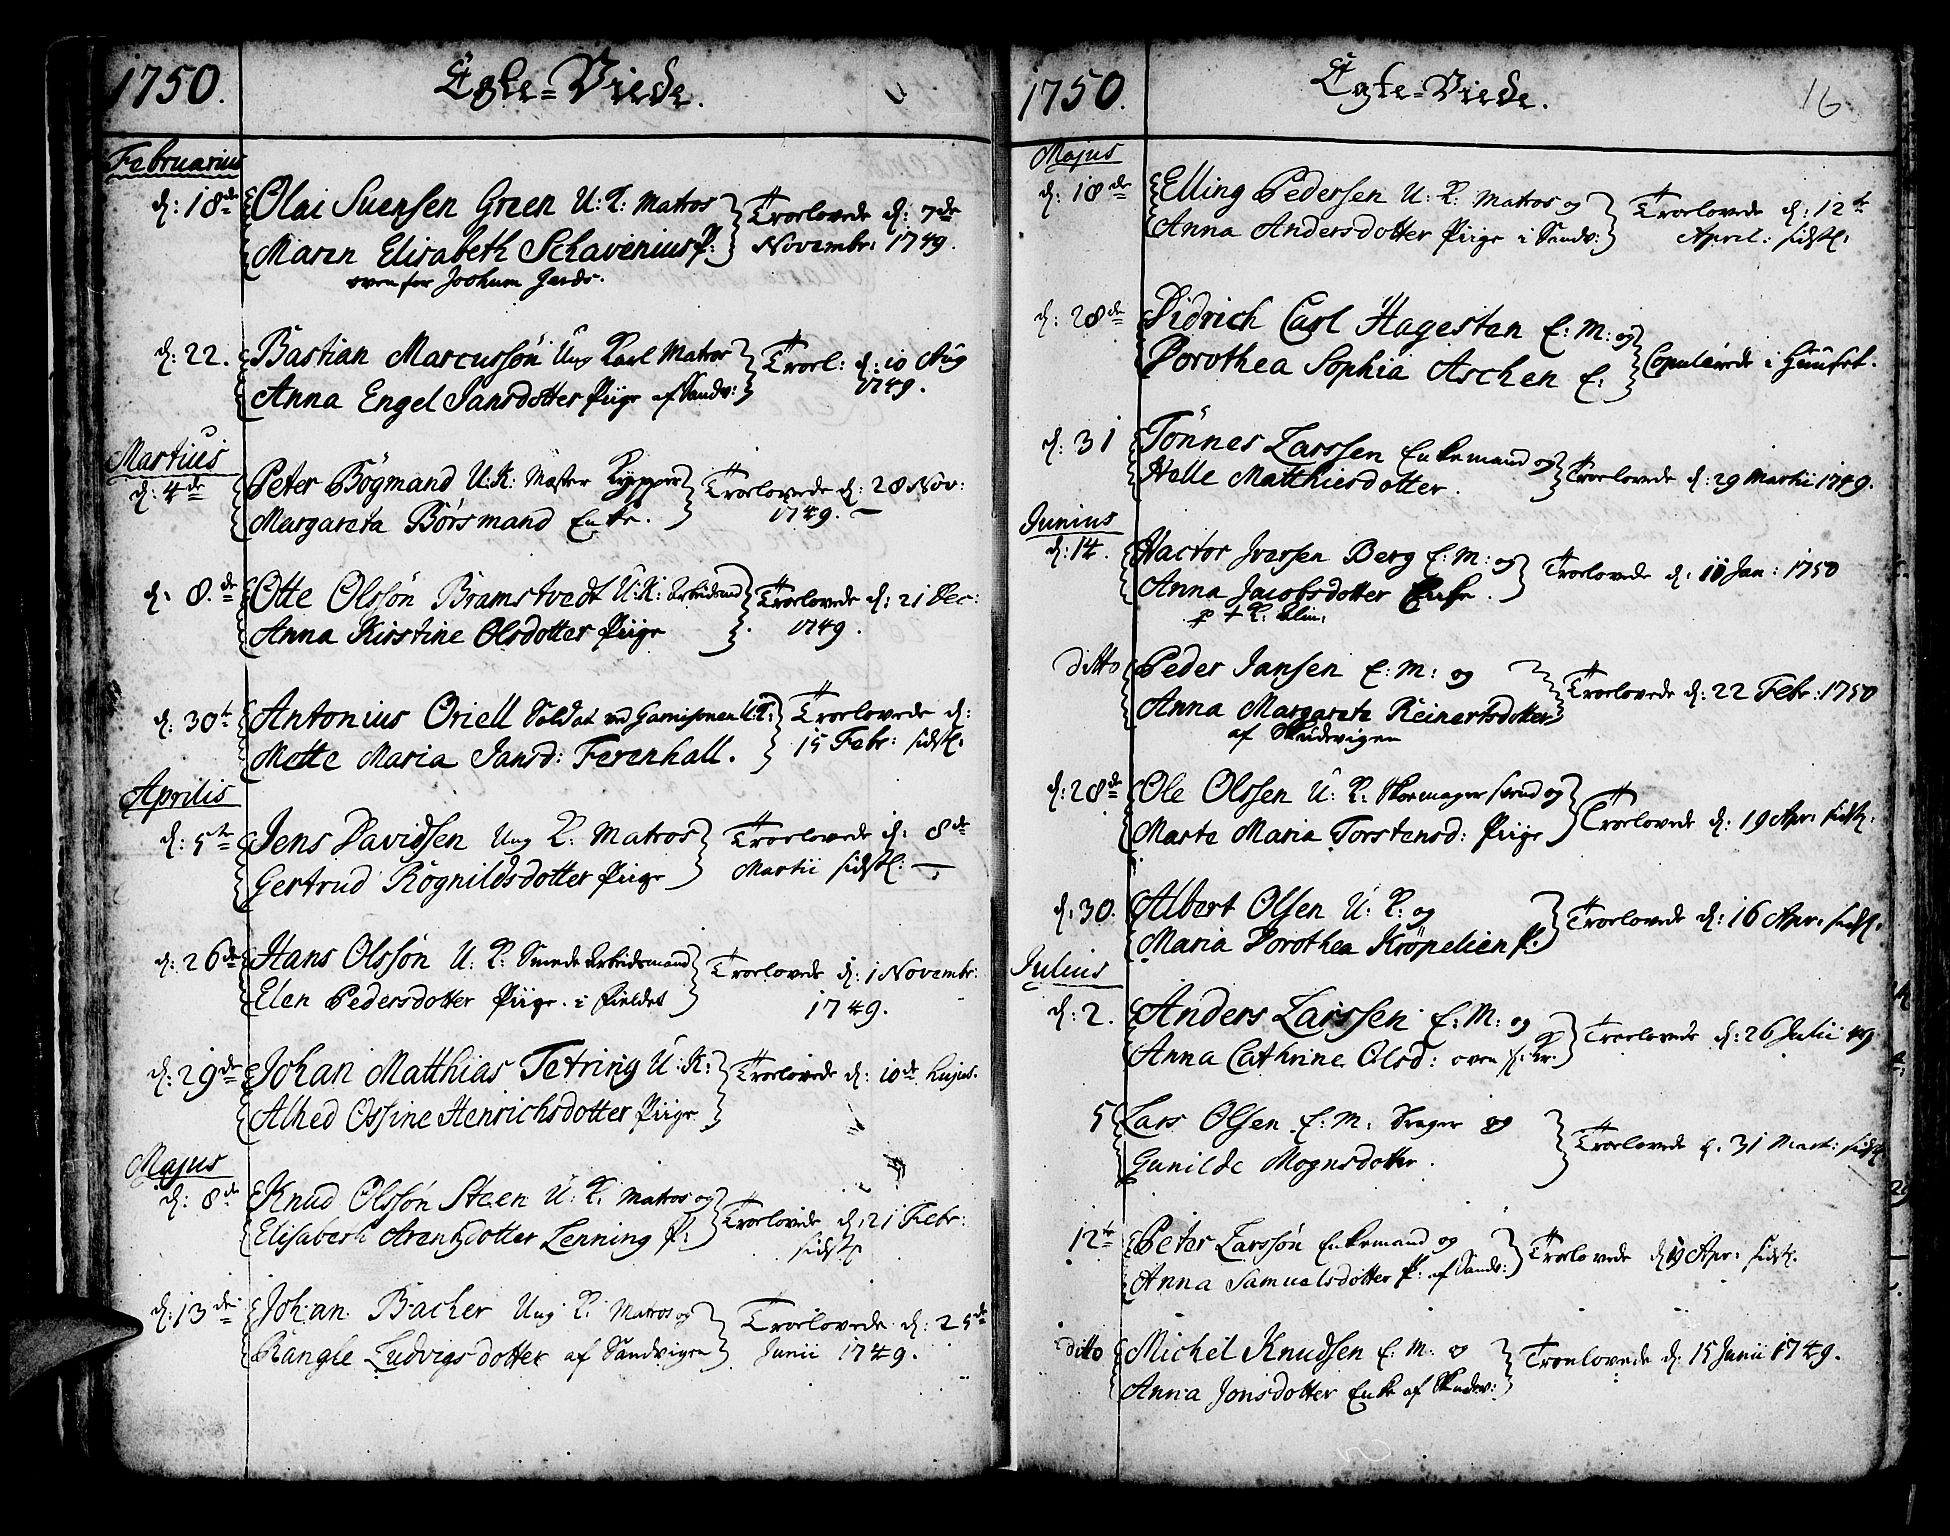 1750.
Egte-Viede.
Februarius
d: 18de
Olai Suensen Green U: K: Matros
Maren Elisabeth Schavenius P:
oven for Jochum Jerds.
Troelovede d: 7de
Novembr: 1749.
d: 22.
Bastian Marcussøn Ung Karl Matros
Anna Engel Jansdotter Piige af Sandv:
Troel: d: 10 Aug
1749.
Martius
d: 4de
Peter Bøgmand U: K: Mæster Kypper
Margareta Børsmand Enke.
Troelovede d: 28 Nov:
1749. —
d: 8.de
Otte Olssøn Bramstvedt U: K: Arbeidsmd
Anna Kirstine Olsdotter Piige
Troelovede d: 21 Dec:
1749.
d: 30te
Antonius Oriell Soldat ved Garnisonen U: K:
Mette Maria Jansd: Ferenhall.
Troelovede d:
15 Febr: sidstl:
Aprilis
d: 5te
Jens Davidsen Ung K: Matros
Gertrud Rögnildsdotter Piige
Troelovede d: 8de
Martii sidstl: —
d: 26de
Hans Olssøn U: K: Smede Arbeidsmand
Elen Pedersdotter Piige. i Fieldet
Troelovede d: 1 Novembr:
1749.
d: 29de
Johan Matthias Tetring U: K:
Alhed Ossine Henrichsdotter Piige
Troelovede d: 10de hujus.
Majus
d: 8de
Knud Olssøn Steen U: K: Matros og
Elisabeth Arentzdotter Lenning P:
Troelovede d: 21 Febr:
sidstl
d: 13de
Johan Bacher Ung K: Matros og
Rangle Ludvigsdotter af Sandvigen
Troelovede d: 25de
Junii 1749.
1750.
Egte-Viede.
16
Majus
d: 18de
Elling Pedersen U: K: Matros og
Anna Andersdotter Piige i Sandv:
Troelovede d: 12te
April: sidstl:
d: 28de
Didrich Carl Hagesten E: M: og
Dorothea Sophia Aschen E:
Copulerede i Huuset.
d: 31
Tönnes Larssen Enkemand og
Helle Matthiesdotter.
Troelovede d: 29 Martii 1749.
Junius
d: 14.
Hactor Iversen Berg E: M: og
Anna Jacobsdotter Enke.
Troelovede d: 11 Jan: 1750
ditto
Peder Jansen E: M: og
Anna Margarete Reinertsdotter
af Skudevigen
Troelovede d: 22 Febr: 1750
d: 28de
Ole Olssen U: K: Skoemager Svend og
Marte Maria Torstensd: Piige
Troelovede d: 19 Apr: sidstl:
d: 30.
Albert Olsen U: K: og
Maria Dorothea Kröpelien P.
Troelovede d: 16 Apr: sidstl.
Julius
d: 2.
Anders Larssen E: M: og
Anna Cathrine Olsd: oven f: Kr:
Troelovede d: 26 Julii 49
5
Lars Olsen E: M: Drager og
Gunilde Mognsdotter.
Troelovede d. 31 Mart: sidstl
12te
Peter Larssøn Enkemand og
Anna Samuelsdotter P: af Sandv:
Troelovede d: Apr: sidstl.
ditto
Michel Knudsen E: M: og
Anna Jonsdotter Enke af Skudev:
Troelovede d: 15 Junii 1749.